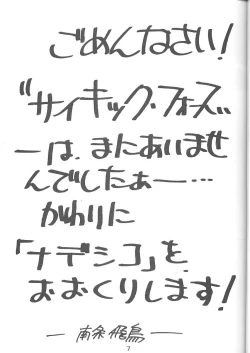 ごめんなさい!
"サイキック・フォース"
ーは、まにあいませ
んでしたぁー…
かわりに
「ナデシコ」を、
おおくりします!
― 南条飛鳥 ―
7